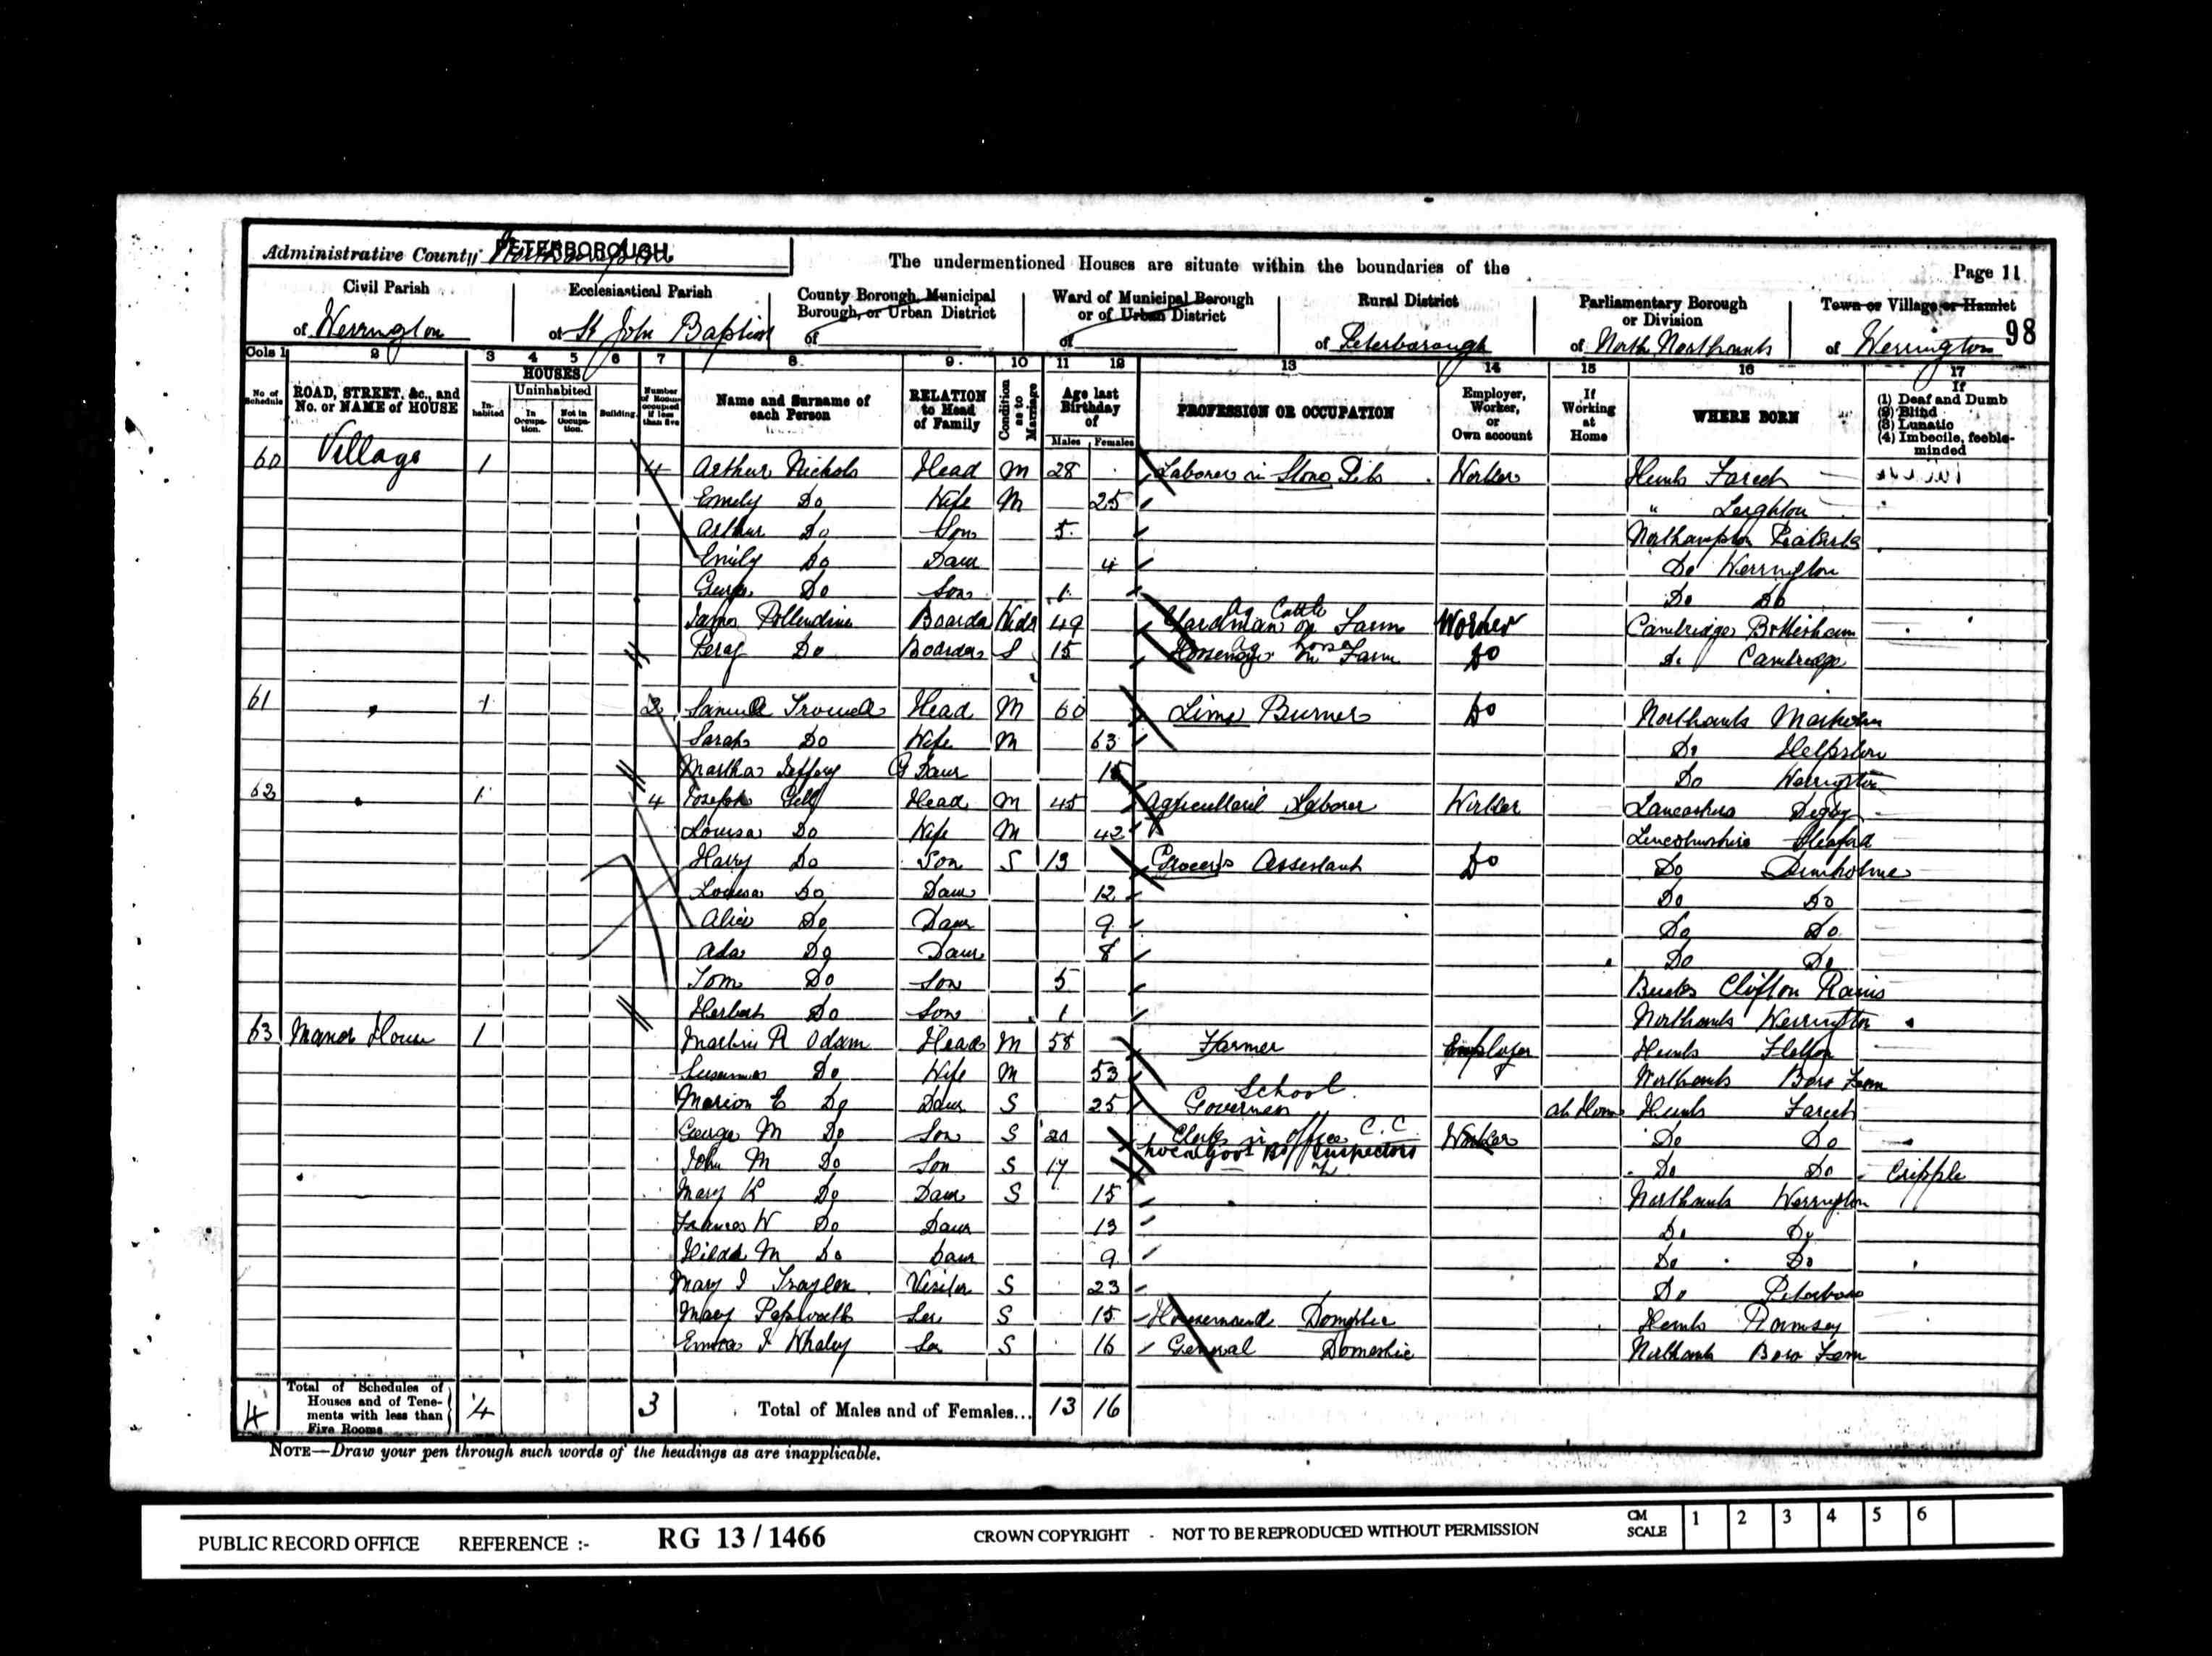 Administrative County PETERBOROUGH
The undermentioned Houses are situate within the boundaries of the
Page 11
Civil Parish of Werrington
Ecclesiastical Parish of St John Baptist
County Borough, Municipal Borough, or Urban District of
Ward of Municipal Borough or of Urban District of
Rural District of Peterborough
Parliamentary Borough or Division of North Northants
Town or Village or Hamlet of Werrington
98
Cols 1 2 3 4 5 6 7 8 9 10 11 12 13 14 15 16 17
No of Schedule
ROAD, STREET, &c., and No. or NAME of HOUSE
HOUSES
Inhabited
Uninhabited
In Occupation.
Not in Occupation.
Building
Number of Rooms occupied if less than five
Name and Surname of each Person
RELATION to Head of Family
Condition as to Marriage
Age last Birthday of
Males Females
PROFESSION OR OCCUPATION
Employer, Worker, or Own account
If Working at Home
WHERE BORN
If (1) Deaf and Dumb (2) Blind (3) Lunatic (4) Imbecile, feeble-minded
60 Village 1 4 Arthur Nichols Head M 28 Laborer in Stone Pits Worker Hunts Farcet
Emely Do Wife M 25 " Leighton
Arthur Do Son 5 Northampton
Emily Do Daur 4 Do Werrington
George Do Son 1 Do Do
James Pollendine Boarder Widr 49 Yardman on Farm Ag Cattle Worker Cambridge Bottisham
Percy Do Boarder S 15 on Farm Ag horse Do Do Cambridge
61 " 1 2 Samuel Trowell Head M 60 Lime Burner Do Northants Marholm
Sarah Do Wife M 63 Do Helpston
Martha Jeffery G Daur Do Werrington
62 " 1 4 Joseph Head M 45 Agricultural Laborer Worker Digby
Louisa Do Wife M 42 Lincolnshire Sleaford
Harry Do Son S 13 Grocers Assistant Do Do
Louisa Do Daur 12 Do Do
Alice Do Daur 9 Do Do
Ada Do Daur 8 Do Do
Tom Do Son 5 Bucks Clifton Rains
Herbert Do Son 1 Northants Werrington
63 Manor House 1 Martin R Odam Head M 58 Farmer Employer Hunts Fletton
Susanna Do Wife M 53 Northants Boro Fen
Marion E Do Daur S 25 School Governess At Home Hunts Farcet
George M Do Son S 20 Clerk in office C.C. Local Govt Bd Inspectors Worker Do Do
John M Do Son S 17 Do Do Cripple
Mary K Do Daur S 15 Northants Werrington
Frances W Do Daur 13 Do Do
Hilda M Do Daur 9 Do Do
Mary I Traylen Visitor S 23 Do Peterboro
Mary Papworth Ser S 15 Housemaid Domestic Hunts Ramsey
Emma I Whaley Ser S 16 General Domestic Northants Boro Fen
4 Total of Schedules of Houses and of Tenements with less than Five Rooms 4 3 Total of Males and of Females... 13 16
NOTE—Draw your pen through such words of the headings as are inapplicable.
PUBLIC RECORD OFFICE REFERENCE :- RG 13 / 1466 CROWN COPYRIGHT - NOT TO BE REPRODUCED WITHOUT PERMISSION CM SCALE 1 2 3 4 5 6